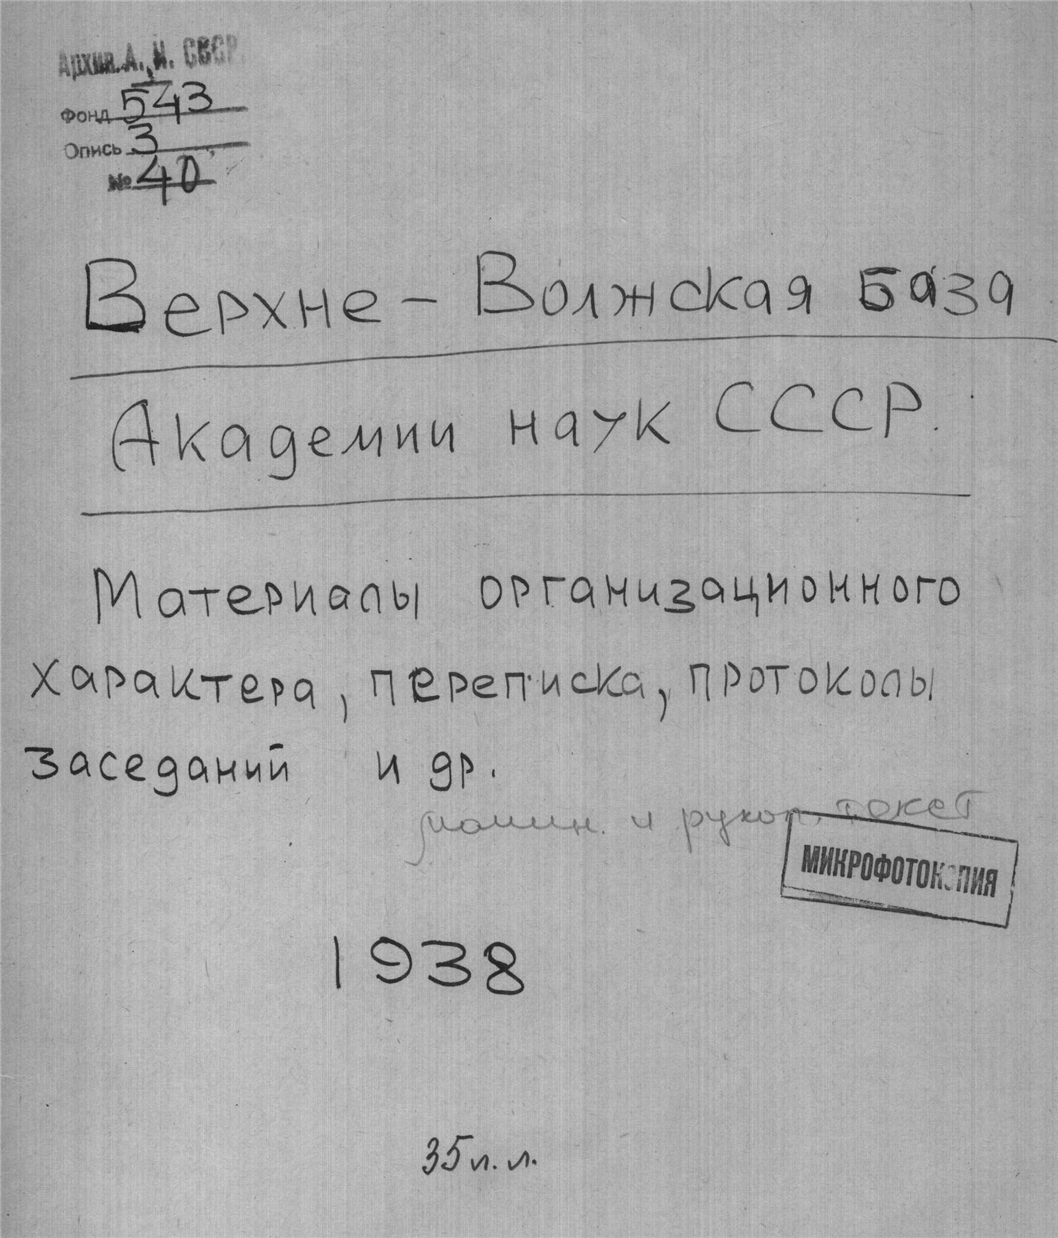 Архив А. Н. СССР
Фонд 543
Опись 3
№ 40
Верхне-Волжская база
Академии наук СССР.
Материалы организационного
характера, переписка, протоколы
заседаний и др.
машин. и рукоп. текст
МИКРОФОТОКОПИЯ
1938
35 л. л.